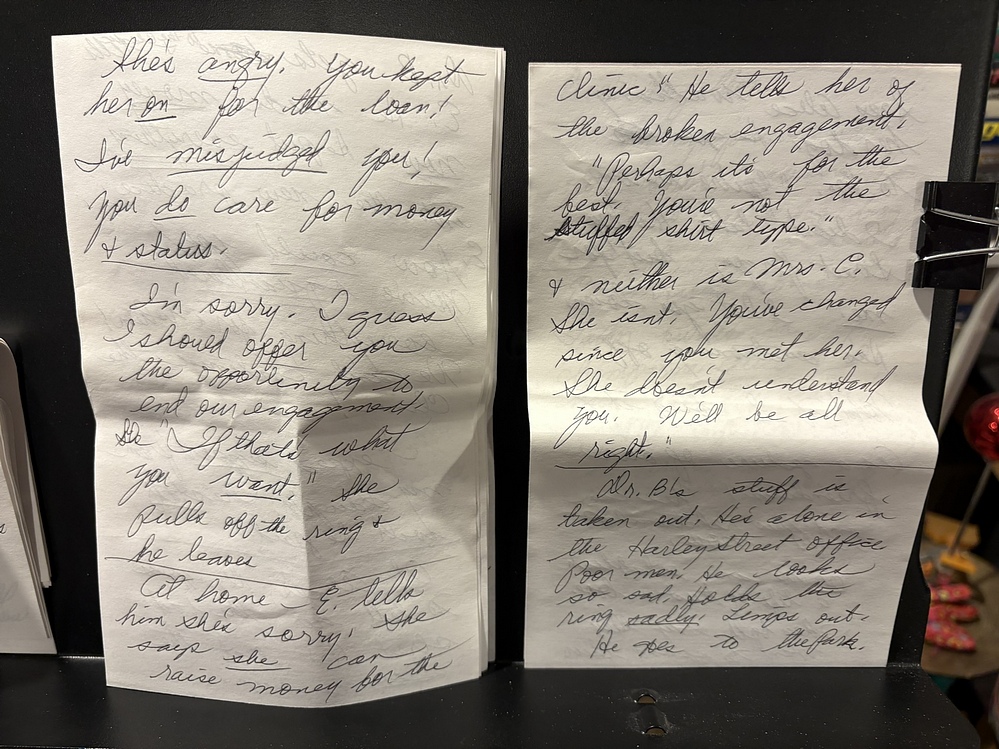 She's angry. You kept
her on for the loan!
I've misjudged you!
You do care for money
& status.
I'm sorry. I guess
I should offer you
the opportunity to
end our engagement.
"If that's what
you want." She
pulls off the ring &
he leaves
At home - E. tells
him she's sorry! She
says she can
raise money for the
clinic" He tells her of
the broken engagement.
"Perhaps it's for the
best. You're not the
stuffed shirt type."
& neither is Mrs. C.
She isn't. You've changed
since you met her.
She doesn't understand
you. We'll be all
right."
Dr. B's stuff is
taken out. He's alone in
the Harley Street office
Poor man. He looks
so sad. Holds the
ring sadly. Limps out.
He goes to the Park.